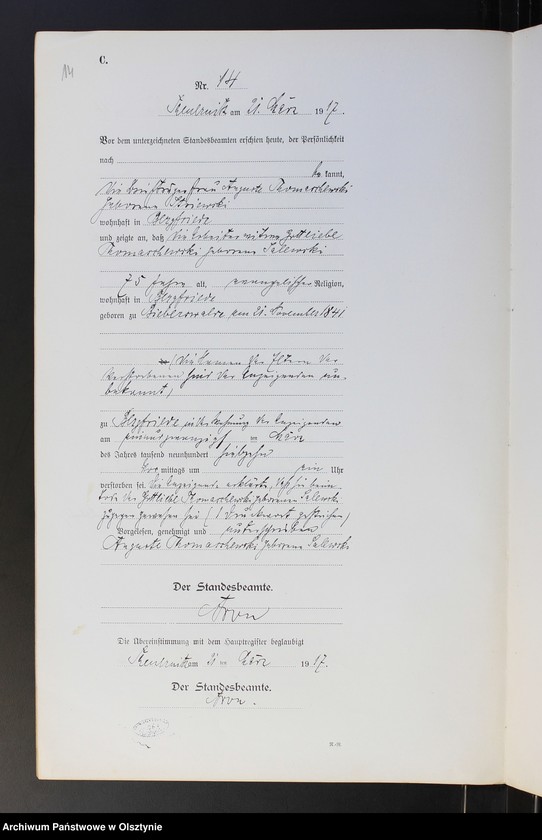 14
C.
Nr. 14
am 21. März 1917.
Vor dem unterzeichneten Standesbeamten erschien heute, der Persönlichkeit
nach
bekannt,
die Frau Auguste Romarchewski
geborene
wohnhaft in Bergfriede
und zeigte an, daß die Gottliebe
Romarchewski geborene Sallewski
75 Jahre alt, evangelischer Religion,
wohnhaft in Bergfriede
geboren zu Bieberswalde am 21. November 1841
(die Namen der Eltern der
Verstorbenen sind der Anzeigenden un-
bekannt)
zu Bergfriede in der Wohnung der Anzeigenden
am einundzwanzigsten März
des Jahres tausend neunhundert siebzehn
Vormittags um ein Uhr
verstorben sei. Die Anzeigende erklärte, daß sie beim
Tode der Gottliebe Romarchewski geborenen Sallewski
zugegen gewesen sei (1 Druckwort gestrichen)
Vorgelesen, genehmigt und unterschrieben
Auguste Romarchewski geborene
Der Standesbeamte.
Die Übereinstimmung mit dem Hauptregister beglaubigt
am 21ten März 1917.
Der Standesbeamte.
Archiwum Państwowe w Olsztynie